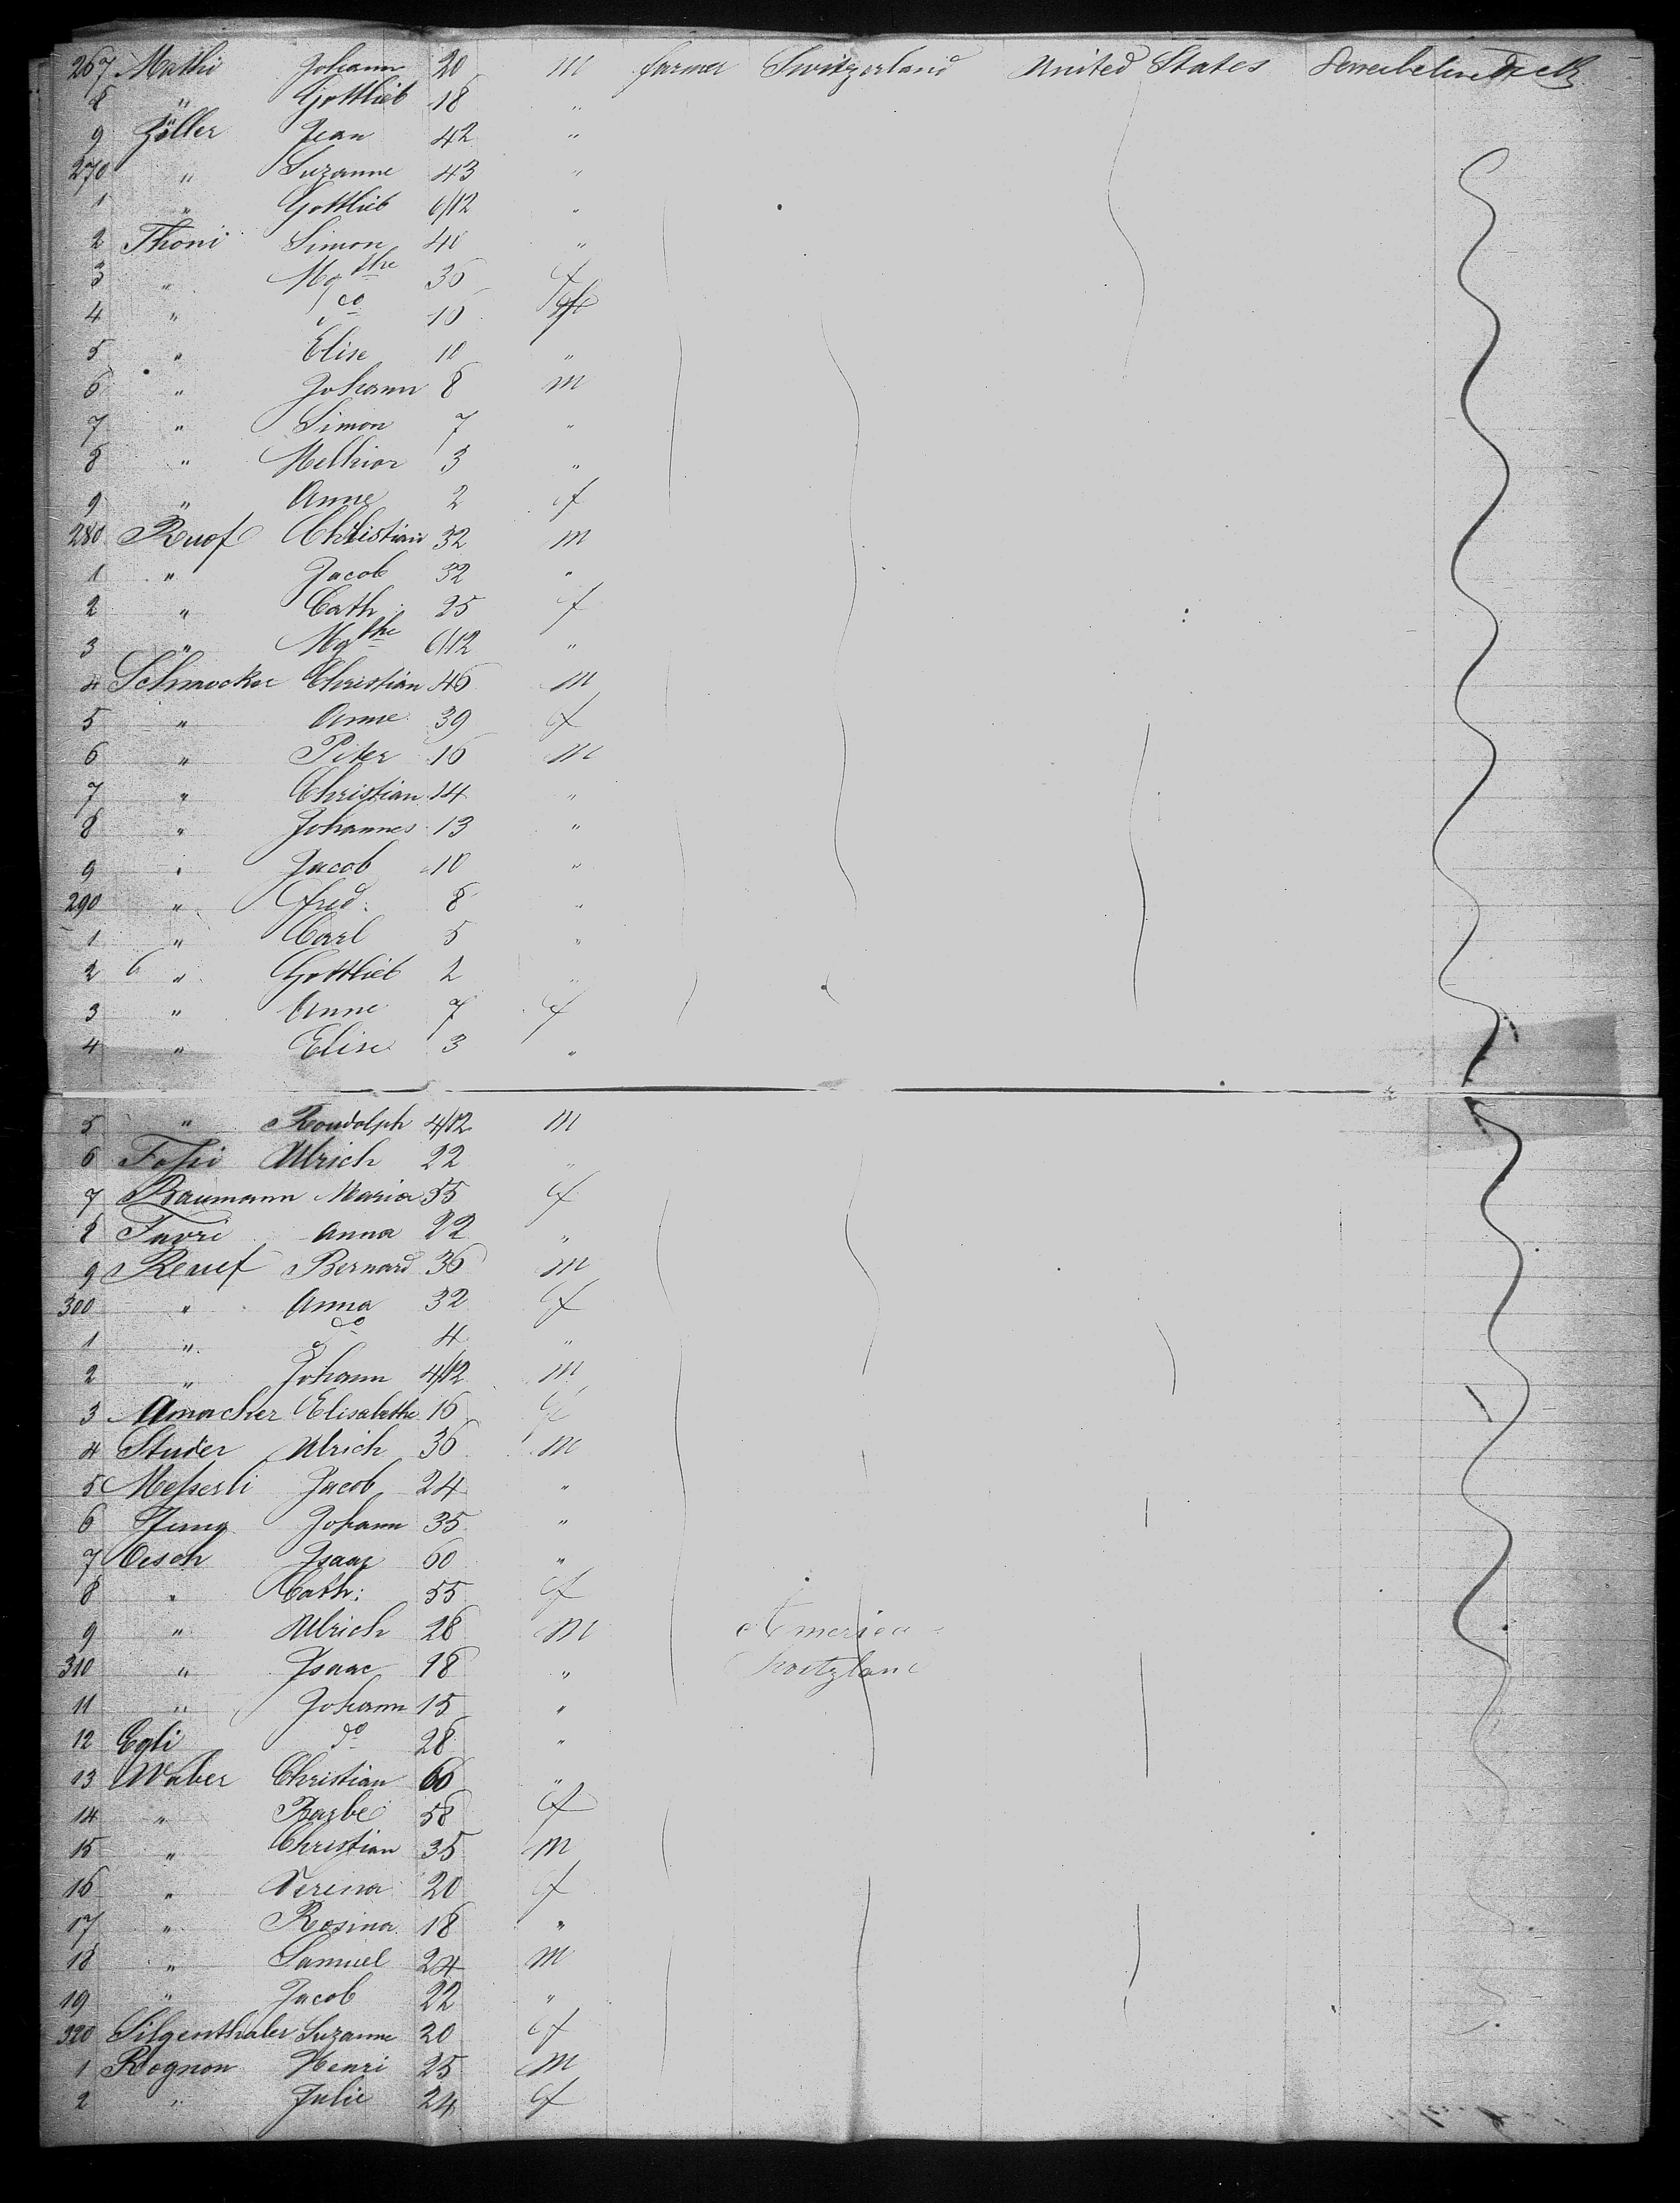 267 Mathi Johann 20 m farmer Switzerland United States Lower between Deck
8 " Gottlieb 18 "
9 Zöller Jean 42 "
270 " Suzanne 43 "
1 " Gottlieb 6/12 "
2 Thoni Simon 40 "
3 " Mgthe 36 f
4 " do 16 f
5 " Elise 10 "
6 " Johann 8 m
7 " Simon 7 "
8 " Melhior 3 "
9 " Anne 2 f
280 Ruof Christian 32 m
1 " Jacob 32 "
2 " Cath: 25 f
3 " Mgthe 6/12 "
4 Schmocker Christian 46 m
5 " Anne 39 f
6 " Piter 16 m
7 " Christian 14 "
8 " Johannes 13 "
9 " Jacob 10 "
290 " fred: 8 "
1 " Carl 5 "
2 " Gottlieb 2 "
3 " Anne 7 f
4 " Elise 3 "
5 " Roudolph 4/12 m
6 Ulrich 22 "
7 Baumann Maria 55 f
8 Favri Anna 22 "
9 Reuef Bernard 36 m
300 " Anna 32 f
1 " do 4 "
2 " Johann 4/12 m
3 Amacher Elisabethe 16 f
4 Studer Ulrich 36 m
5 Messerli Jacob 24 "
6 Johann 35 "
7 Oesch Isaac 60 "
8 " Cath: 55 f
9 " Ulrich 28 m America
310 " Isaac 18 " Switzland
11 " Johann 15 "
12 Egli do 28 "
13 Waber Christian 60 "
14 " Barbe 58 f
15 " Christian 35 m
16 " Verena 20 f
17 " Rosina 18 "
18 " Samuel 24 m
19 " Jacob 22 "
320 Silgenthaler Suzanne 20 f
1 Rognon Henri 25 m
2 " Julie 24 f